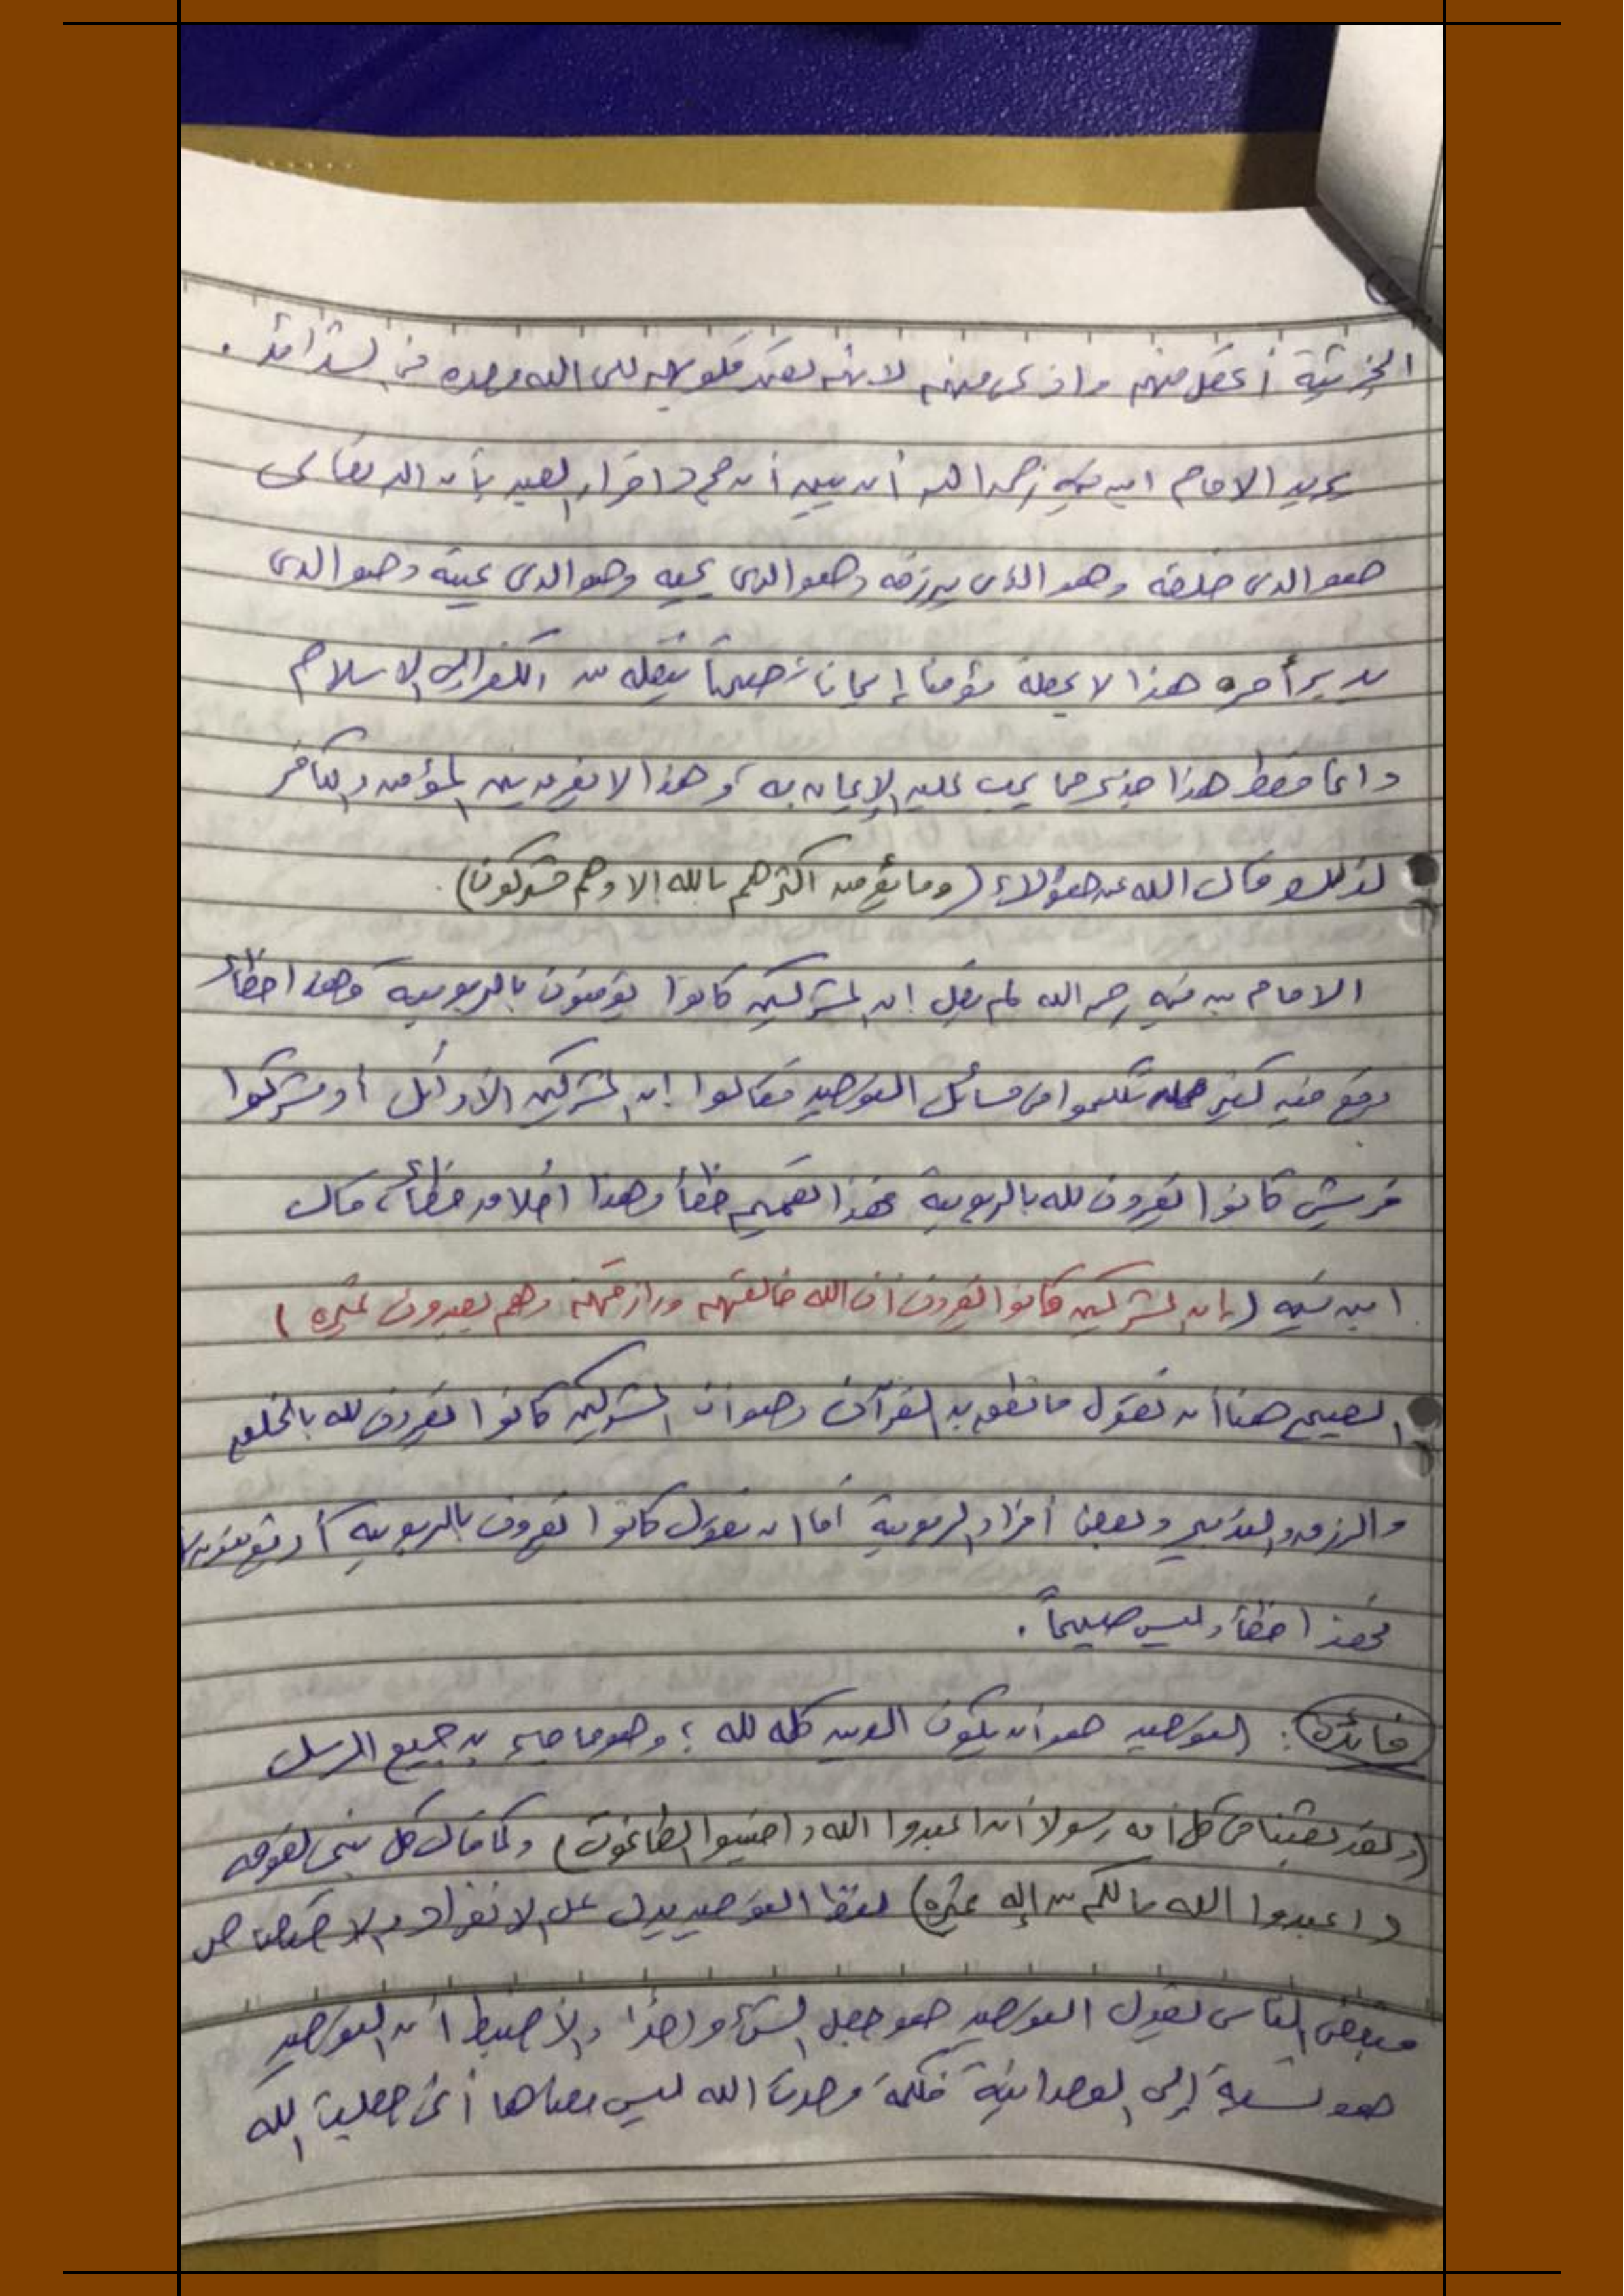 الجزئية أعقل منهم وأذكى منهم لانهم تصمد قلوبهم لله وحده في الشدائد .
يريد الامام ابن تيميه رحمه الله أن يبين أن مجرد اقرار العبد بأن الله تعالى
هو الذى خلقه وهو الذى يرزقه وهو الذى يحيه وهو الذى يميته وهو الذى
يدبر أمره هذا لا يجعله مؤمنا إيمانا صحيحاً ينقله من الكفر إلى الاسلام
وانما فقط هذا جزء مما يجب عليه الإيمان به ، وهذا لا يفرق بين المؤمن والكافر
لذلك قال الله عن هؤلاء (وما يؤمن اكثرهم بالله إلا وهم مشركون) .
الامام بن تيميه رحمه الله لم يقل إن المشركين كانوا يؤمنون بالربوبيه وهذا خطأ
وقع فيه كثير ممن تكلموا في مسائل التوحيد فقالوا إن المشركين الأوائل أو مشركوا
قريش كانوا يقرون لله بالربوبية فهذا تعميم خطأ وهذا اطلاق خطأ ، قال
ابن تيميه (إن المشركين كانوا يقرون أن الله خالقهم ورازقهم وهم يعبدون غيره )
الصحيح هنا أن نقول ما نطق به القرآن وهو أن المشركين كانوا يقرون لله بالخلق
والرزق والتدبير وبعض أفراد الربوبية أما ان نقول كانوا يقرون بالربوبيه أو يؤمنون بها
فهذا خطأ وليس صحيحاً .
فائدة : التوحيد هو أن يكون الدين كله لله ؛ وهو ما جاء به جميع الرسل
(ولقد بعثنا في كل أمه رسولا أن اعبدوا الله واجتنبوا الطاغوت) وكما قال كل نبي لقومه
(اعبدوا الله مالكم من إله غيره) لفظ التوحيد يدل على الانفراد والاختصاص
فبعض الناس يقول التوحيد هو جعل الشئ واحدا والأضبط أن التوحيد
هو نسبة إلى الوحدانية فكلمة وحدت الله ليس معناها أنى جعلت الله